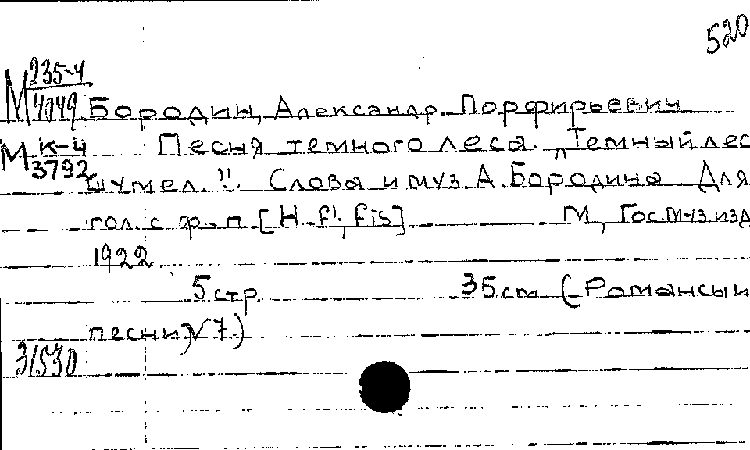 520
М 235-4
4949 Бородин, Александр Порфирьевич
М К-4 Песня темного леса. „Темный лес
3792 шумел.". Слова и муз. А. Бородина Для
гол. с ф.-п. [H - fi, fis] М, Гос. муз. изд
1922
5 стр 35 см (Романсы и
песни) √ 7)
31530